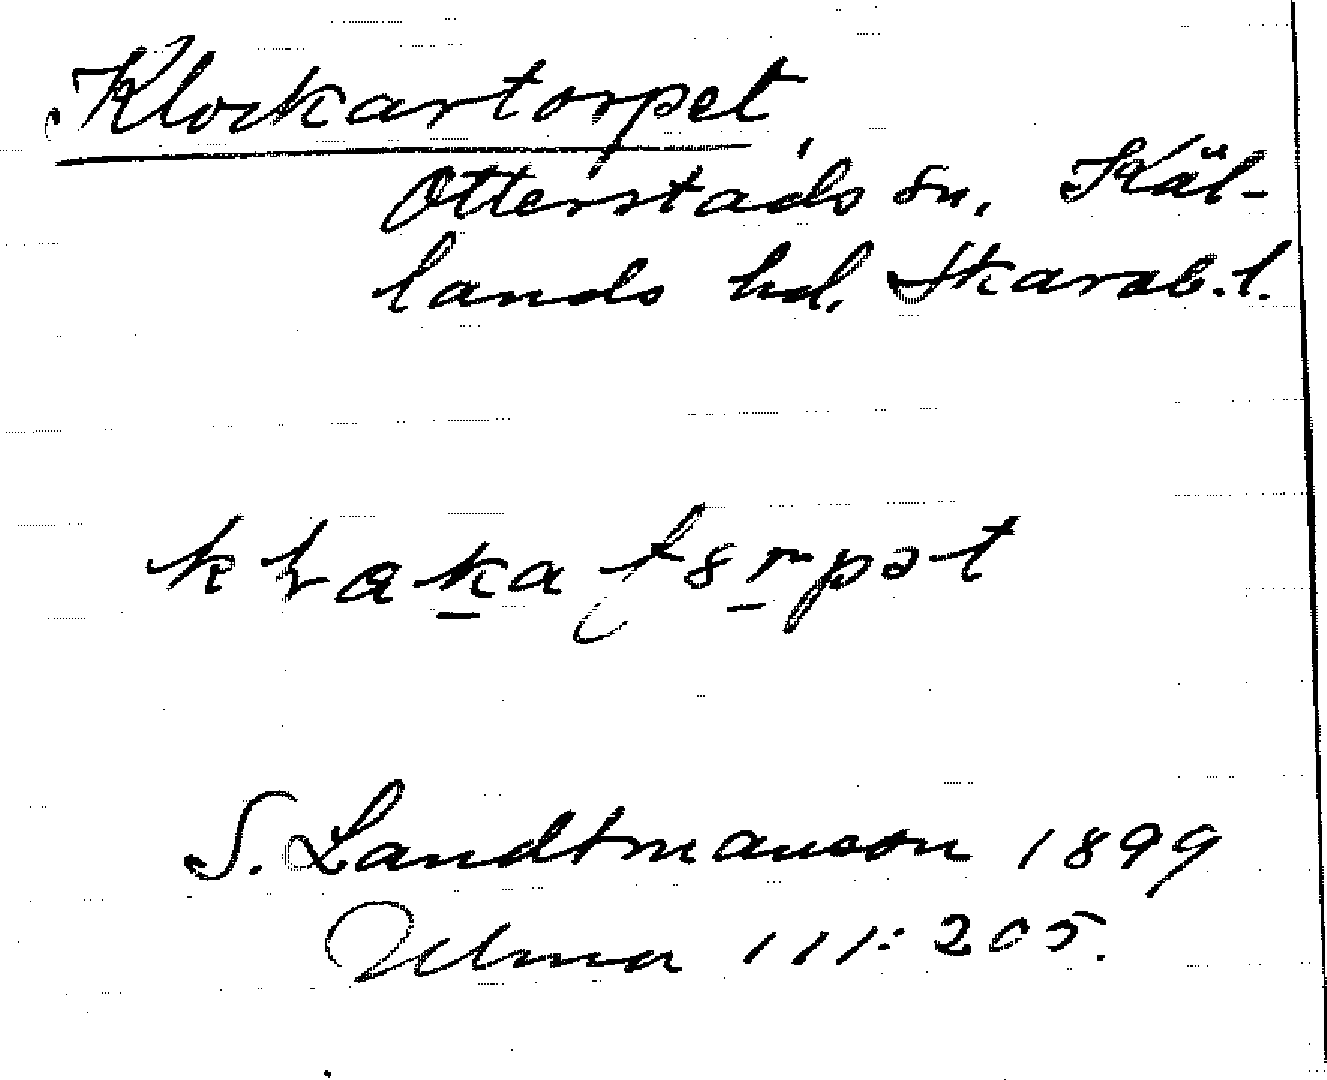 Klockartorpet,
Otterstads sn, Kål-
lands hd, Skarab. l.
S. Landtmanson 1899
Ulma 111:205.